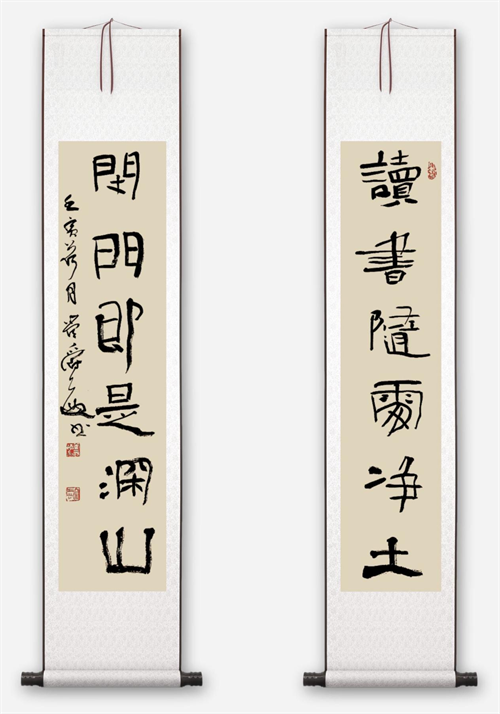 讀書隨處净土
閉門即是深山
壬寅